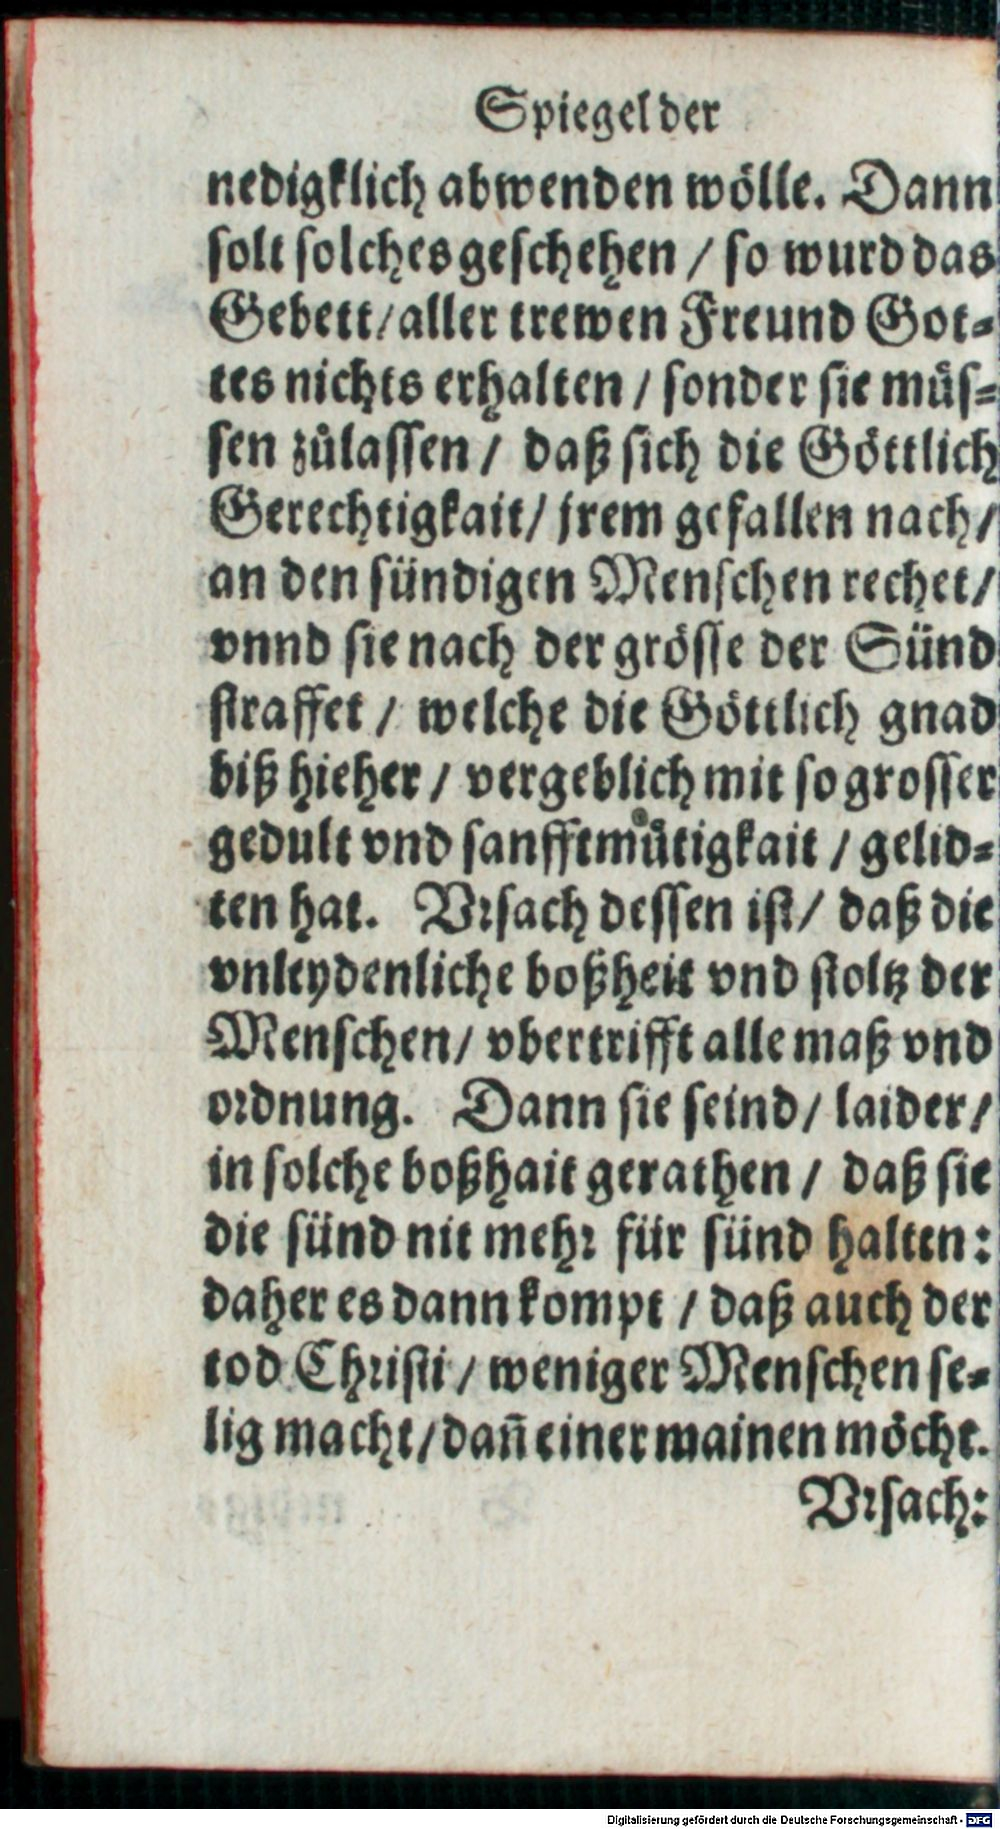 Spiegel der
nedigklich abwenden wölle. Dann
solt solches geschehen / so wurd das
Gebett / aller trewen Freund Got-
tes nichts erhalten / sonder sie müs-
sen zůlassen / daß sich die Göttlich
Gerechtigkait / jrem gefallen nach /
an den sündigen Menschen rechet /
vnnd sie nach der grösse der Sünd
straffet / welche die Göttlich gnad
biß hieher / vergeblich mit so grosser
gedult vnd sanfftmütigkait / gelid-
ten hat. Vrsach dessen ist / daß die
vnleydenliche boßheit vnd stoltz der
Menschen / vbertrifft alle maß vnd
ordnung. Dann sie seind / laider /
in solche boßhait gerathen / daß sie
die sünd nit mehr für sünd halten:
daher es dann kompt / daß auch der
tod Christi / weniger Menschen se-
lig macht / dañ einer mainen möcht.
Vrsach:
Digitalisierung gefördert durch die Deutsche Forschungsgemeinschaft - DFG